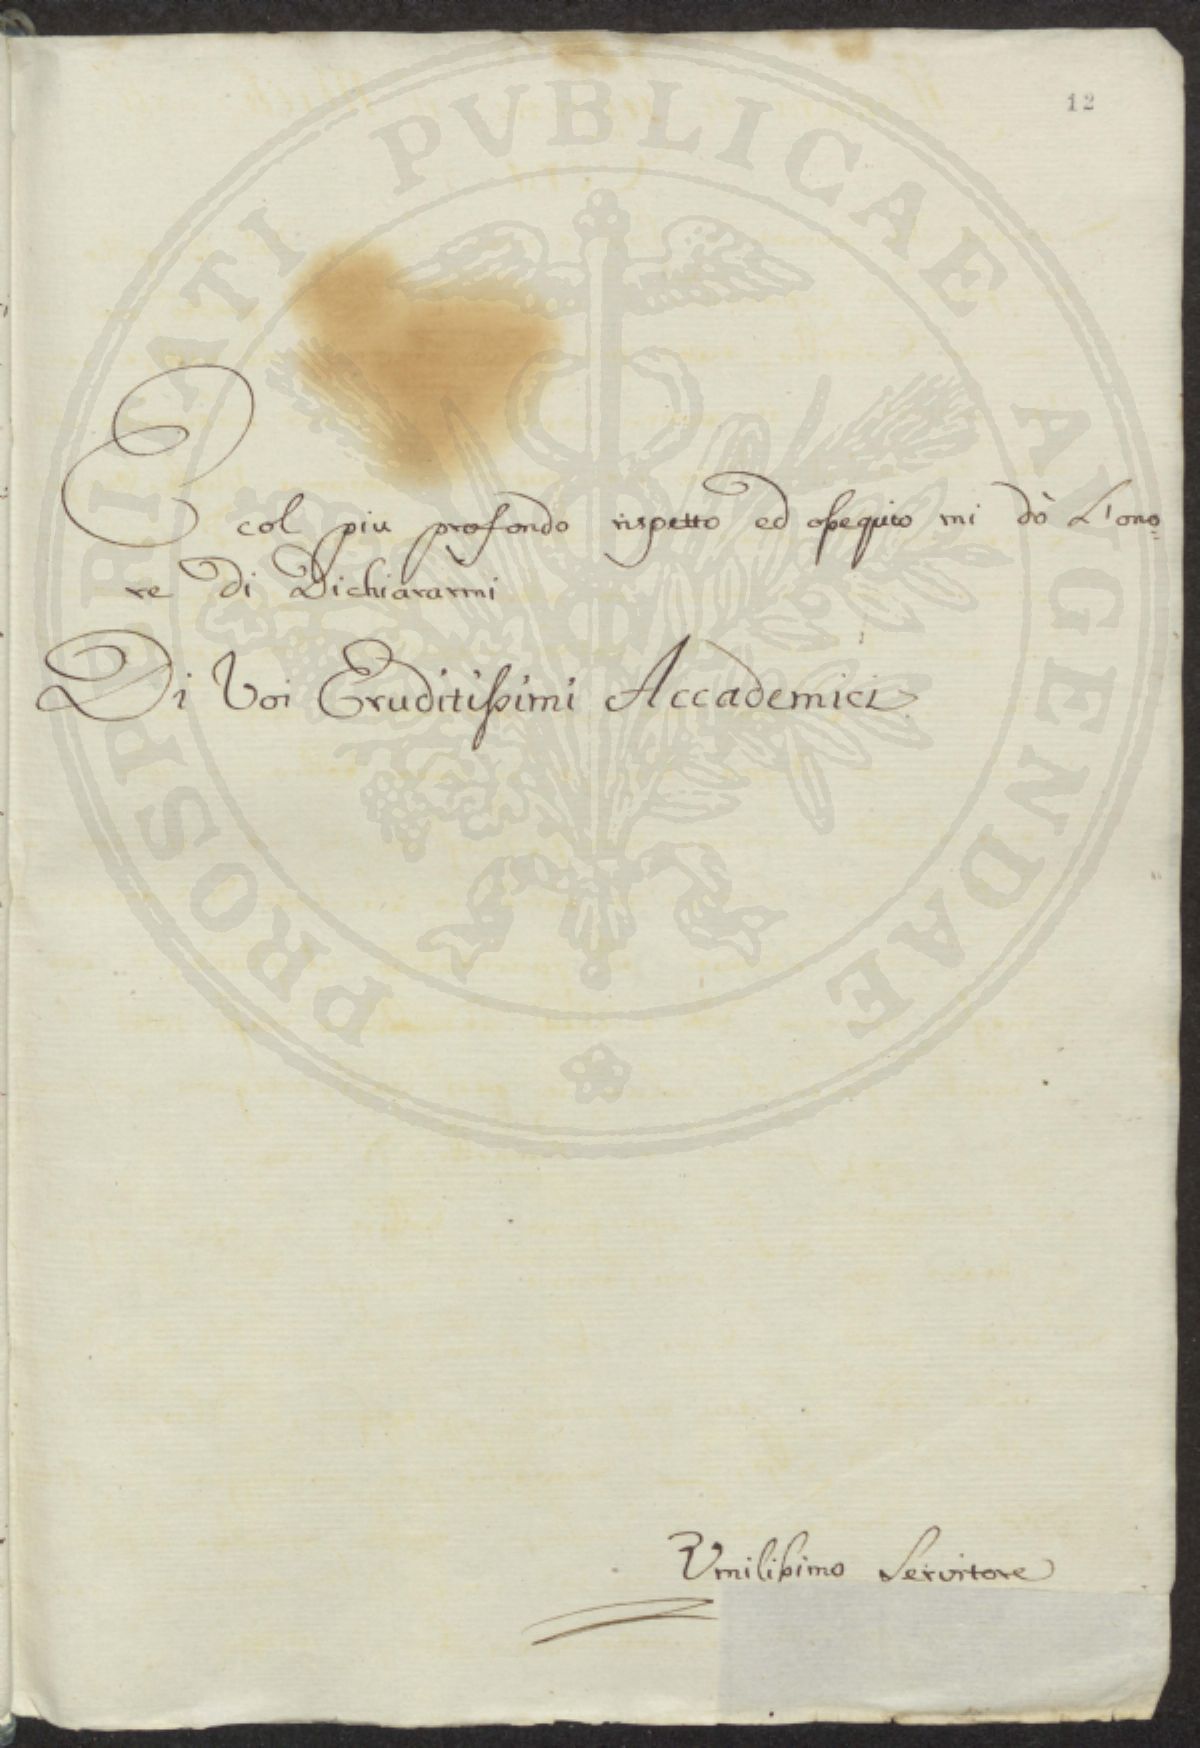 12
E col piu profondo rispetto ed ossequio mi dò L'ono=
re di Dichiararmi
Di Voi Eruditissimi Accademici
Umilissimo Servitore
PROSPERITATI PVBLICAE AVGENDAE